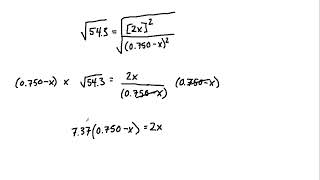 √54.3 = √[2x]² / √(0.750-x)²
(0.750-x) x √54.3 = 2x / (0.750-x) (0.750-x)
7.37(0.750-x) = 2x